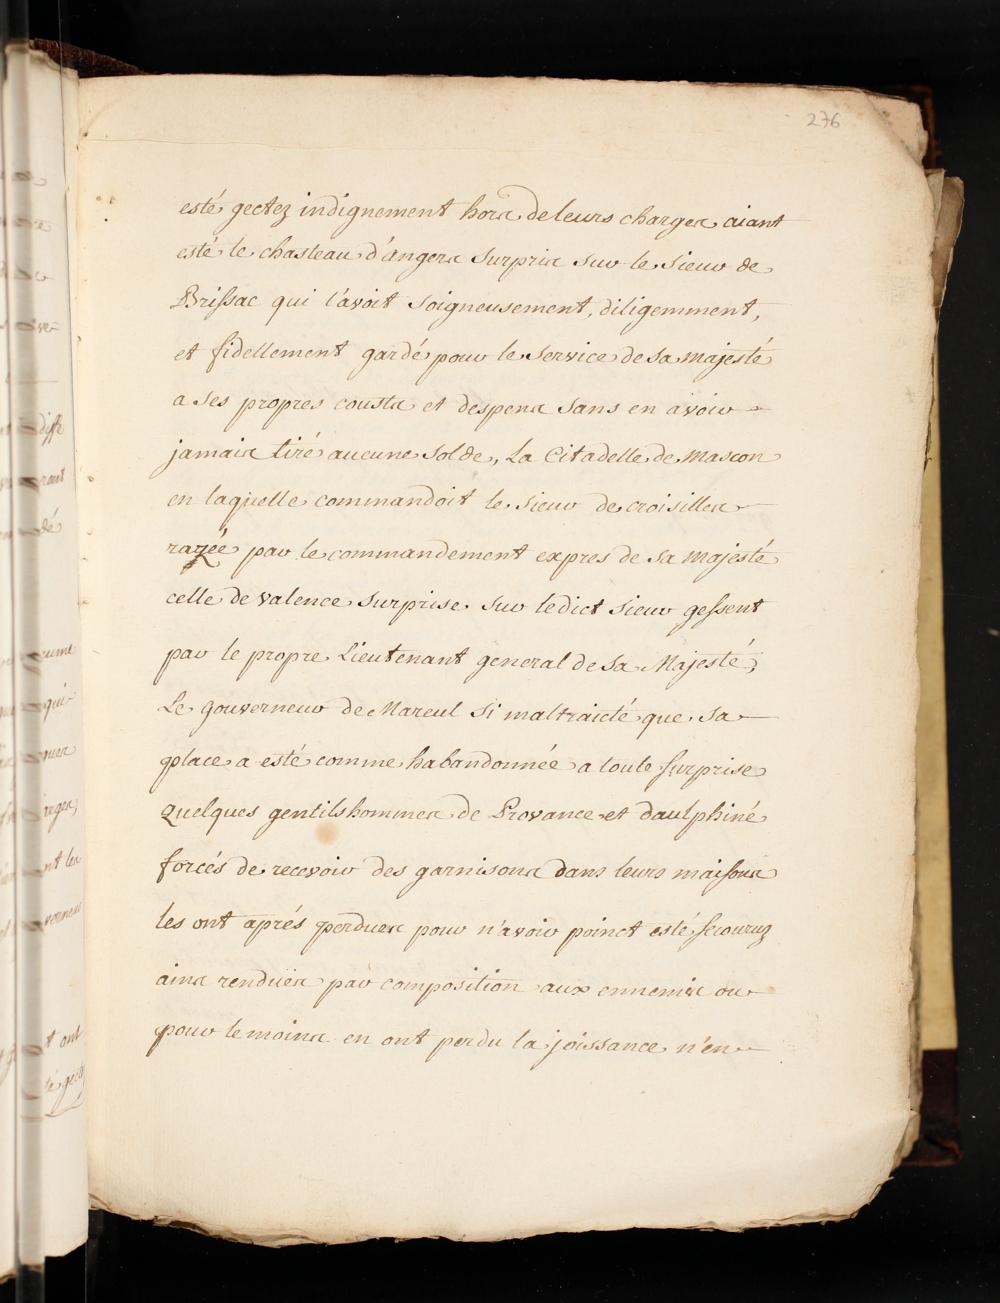 276
esté gectez indignement hors de leurs charges aiant
esté le chasteau d'angers surpris sur le sieur de
Brissac qui l'avoit soigneusement, diligemment,
et fidellement gardé pour le service de sa majesté
a ses propres cousts et despens sans en avoir
jamais tiré aucune solde, La Citadelle de Mascon
en laquelle commandoit le sieur de croisilles
razéé par le commandement expres de sa Majesté
celle de valence surprise sur ledict sieur gessent
par le propre Lieutenant general de sa Majesté,
Le gouverneur de Mareul si maltraicté que sa
place a esté comme habandonnée a toute surprise
quelques gentilshommes de Provance et daulphiné
forcés de recevoir des garnisons dans leurs maisons
les ont aprés perdues pour n'avoir poinct esté secouruz
ains rendües par composition aux ennemis ou
pour le moins en ont perdu la joissance n'en